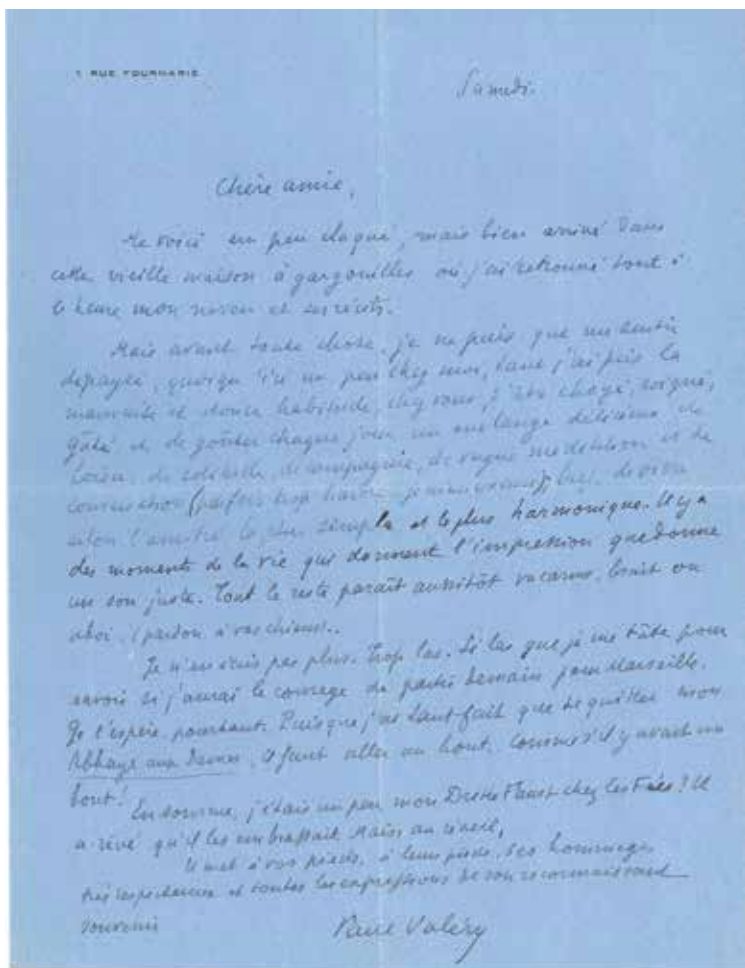 1 RUE FOURNARIE
Samedi.
Chère amie,
Me voici un peu claqué, mais bien arrivé dans
cette vieille maison à gargouilles où j'ai retrouvé tout à
l'heure mon neveu et
Mais avant toute chose, je ne puis que me sentir
dépaysé, quoiqu'ici un peu chez moi, tant j'ai pris la
mauvaise et douce habitude, chez vous, d'être choyé, soigné,
gâté et de goûter chaque jour un mélange délicieux de
de solitude, de compagnie, de vague méditation et de
conversation (parfois trop
selon l'amitié la plus simple et la plus harmonique. Il y a
des moments de la vie qui donnent l'impression que donne
un son juste. Tout le reste paraît aussitôt vacarme, bruit ou
aboi, (pardon à vos chiens)..
Je n'en écris pas plus. Trop las. Si las que je me tâte pour
savoir si j'aurai le courage de partir demain pour Marseille.
Je l'espère, pourtant. Puisque j'ai tant fait que de quitter mon
Abbaye aux Dames, il faut aller au bout, comme s'il y avait un
bout!
En somme, j'étais un peu mon Docteur Faust chez les Fées! Il
a rêvé qu'il les embrassait. Mais au réveil,
Il met à vos pieds, à leurs pieds, ses hommages
très respectueux et toutes les expressions de son reconnaissant
souvenir
Paul Valéry